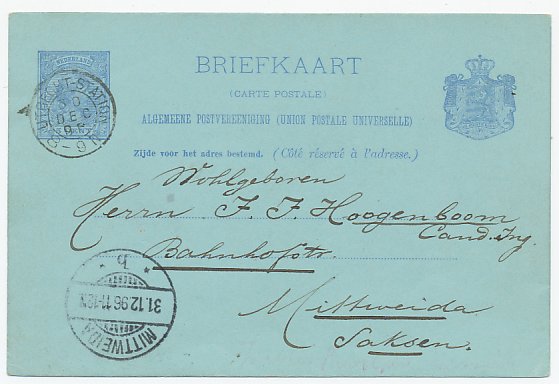 NEDERLAND
UTRECHT-STATION
30
DEC
96
8-9 N
BRIEFKAART
(CARTE POSTALE)
ALGEMEENE POSTVEREENIGING (UNION POSTALE UNIVERSELLE)
Zijde voor het adres bestemd. (Côté réservé à l'adresse.)
Wohlgeboren
Herrn J. J. Hoogenboom
Cand. Ing.
Bahnhofstr.
Mittweida
Saksen.
* b *
31.12.96.11-12V.
MITTWEIDA